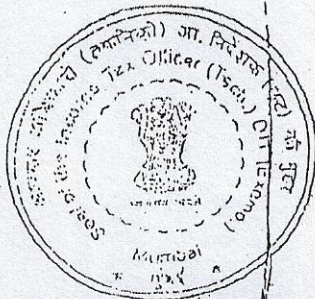 आयकर अधिकारी (तकनीकी) आ. निदेशक (छूट) की मुद्रा
Seal of the Income Tax Officer (Tech.) DIT (Exemp.)
सत्यमेव जयते
Mumbai
* मुंबई *